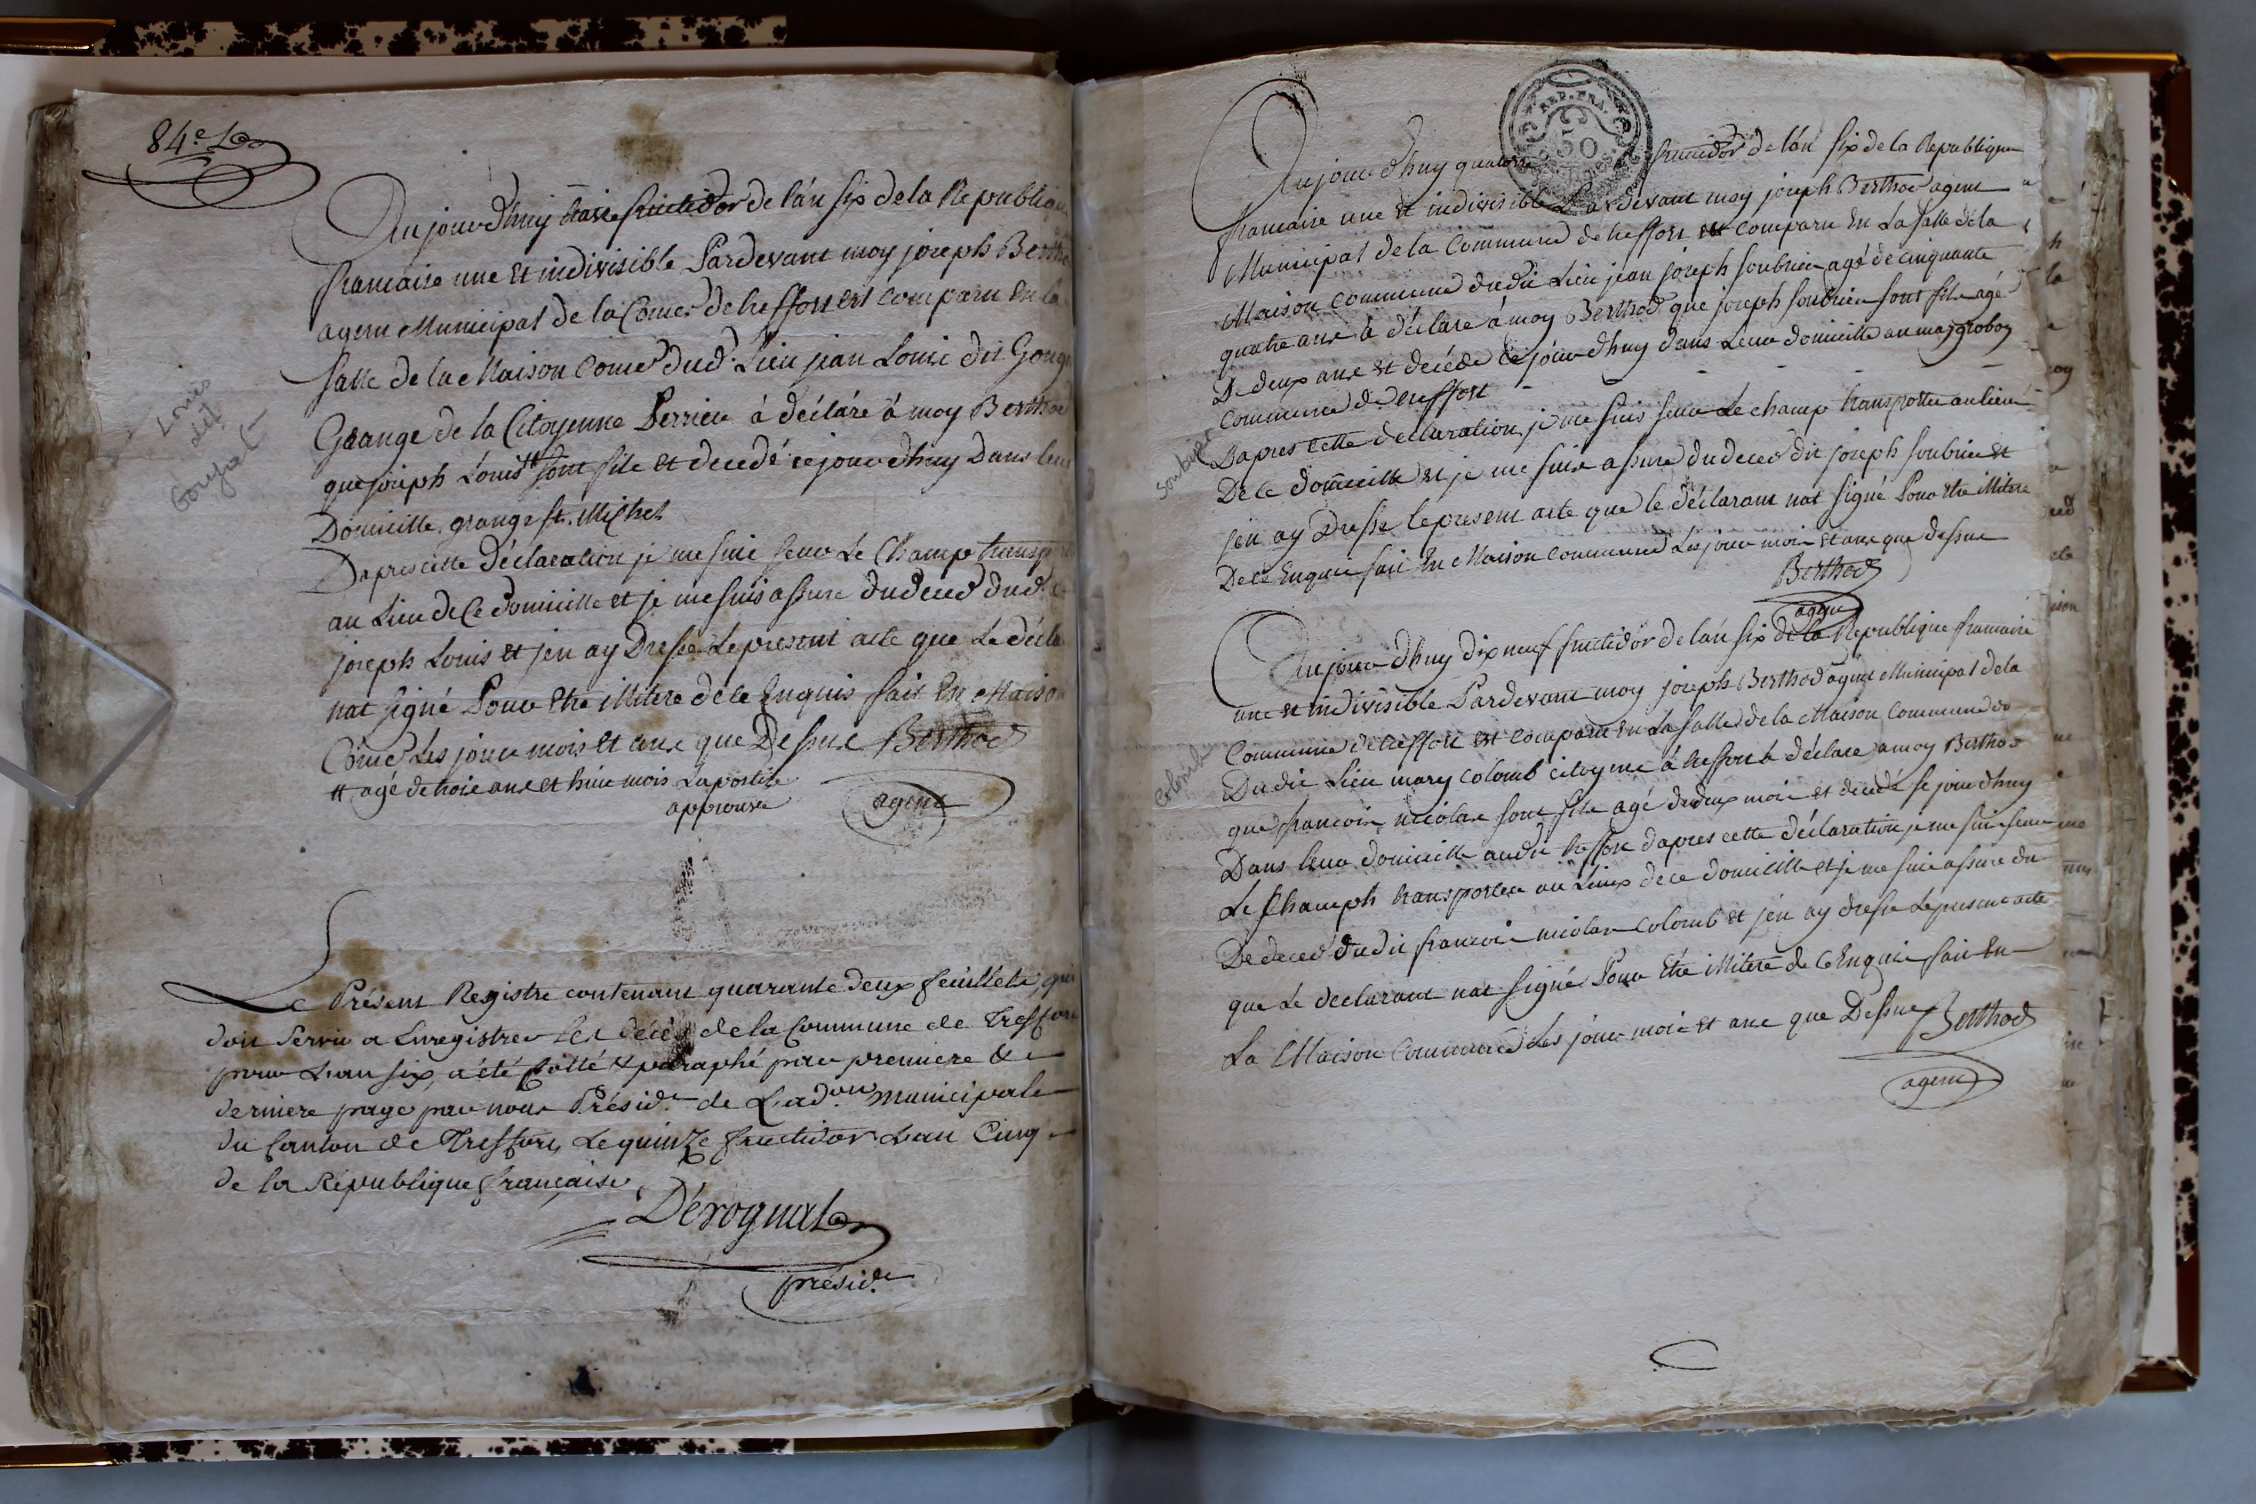 84e
Aujourdhuy treise fructidor de l'an six de la Republique
francaise une et indivisible Pardevant moy joseph Bertho
agent Municipal de la Come de treffort est comparu En la
salle de la Maison Come dud. Lieu jean Louis dit Gouja
Grange de la Citoyenne Perrier à déclaré à moy Berthod
que joseph Louis # sont fils et decedé cejourdhuy Dans leur
Domicille grange st. Michel
Dapres cette déclaration je me suis seur Le Champ transpor
au Lieu de Ce domicille et je me suis assure du deced dud.
joseph Louis et jen ay Dressé Le present acte que Le décla
nat signé Pour Etre illitere de ce Enquis fait En Maison
Come Les jour mois et ans que Dessus Berthod
# agé de trois ans et huit mois Lapostile
approuvé
agent
Le Présent Registre contenant quarante deux feuillets, qui
doit servir a Enregistrer les décès de la Commune de Treffort
pour L'an six, a été Cotté & paraphé par premiere &
derniere page par nous Présid.t de L'ad.on municipale
du Canton de Treffort, Le quinze fructidor L'an Cinq
de la République française,
Dérognat
présid.t
Louis
dit
Goujat
REP. FRA.
50
Aujourdhuy quatorze fructidor de l'an six de la Republique
francaise une et indivisible Pardevant moy joseph Berthod agent
Municipal de la Commune de treffort est comparu En La salle de la
Maison Commune dudit Lieu jean joseph soubrier agé de cinquante
quatre ans à déclaré à moy Berthod que joseph soubrier sont fils agé
De deux ans et decédé ce jourdhuy dans Leur domicille au
Commune de treffort
Dapres cette declaration je me suis seur Le champ transporter au lieu
De ce domicille et je me suis assure du deced dit joseph soubrier et
jen ay Dressé le present acte que le déclarant nat signé Pour Etre illitere
De ce Enquis fait En Maison Commune Les jour mois et ans que dessus
Berthod
agent
Soubrier
Aujourdhuy dix neuf fructidor de l'an six de la Republique francaise
une et indivisible Pardevant moy joseph Berthod agent Municipal de la
Commune de treffort est comparu En La salle de la Maison Commune
Dudit Lieu mary Colomb citoyene à treffort à déclaré amoy Berthod
que francois nicolas sont fils agé de deux mois et decedé se jourdhuy
Dans leur domicille audit treffort dapres cette déclaration je me suis seur
Le Champh transporter au Lieux de ce domicille et je me suis assure du
De deced dudit francois nicolas Colomb et jen ay dressé Le present acte
que Le declarant nat signé Pour Etre illitere de ce Enquis fait En
La Maison Commune Les jour mois et ans que Dessus Berthod
agent
Colomb